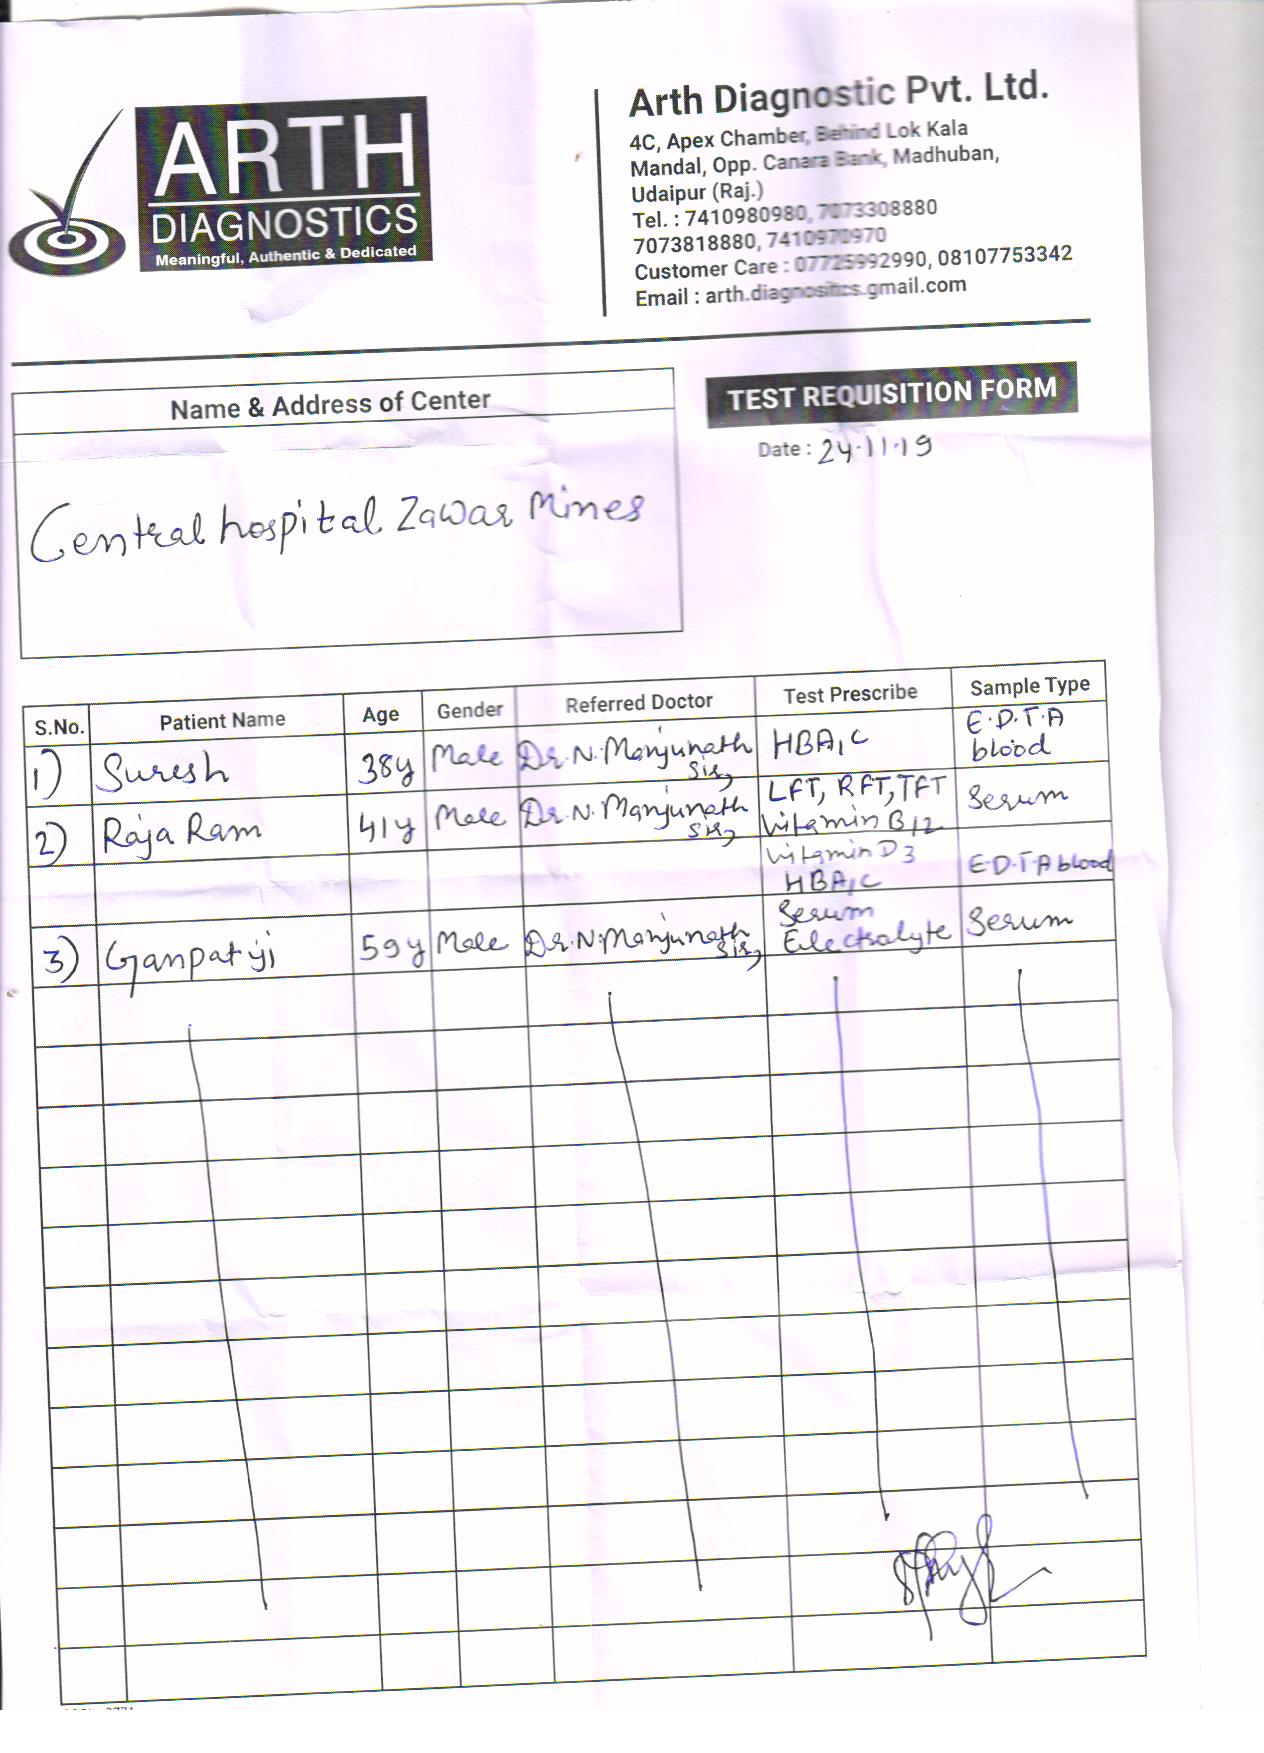 ARTH
DIAGNOSTICS
Meaningful, Authentic & Dedicated
Arth Diagnostic Pvt. Ltd.
4C, Apex Chamber, Behind Lok Kala
Mandal, Opp. Canara Bank, Madhuban,
Udaipur (Raj.)
Tel. : 7410980980, 7073308880
7073818880, 7410970970
Customer Care : 07725992990, 08107753342
Email : arth.diagnositics.gmail.com
Name & Address of Center
TEST REQUISITION FORM
Date : 24.11.19
Central hospital Zawar Mines
S.No. Patient Name Age Gender Referred Doctor Test Prescribe Sample Type
1) Suresh 38y Male Dr. N. Manjunath Sir HBA1C E.D.T.A blood
2) Raja Ram 41y Male Dr. N. Manjunath Sir LFT, RFT, TFT Serum
Vitamin B12
Vitamin D3 E.D.T.A blood
HBA1C
3) Ganpat ji 59y Male Dr. N. Manjunath Sir Serum Electrolyte Serum